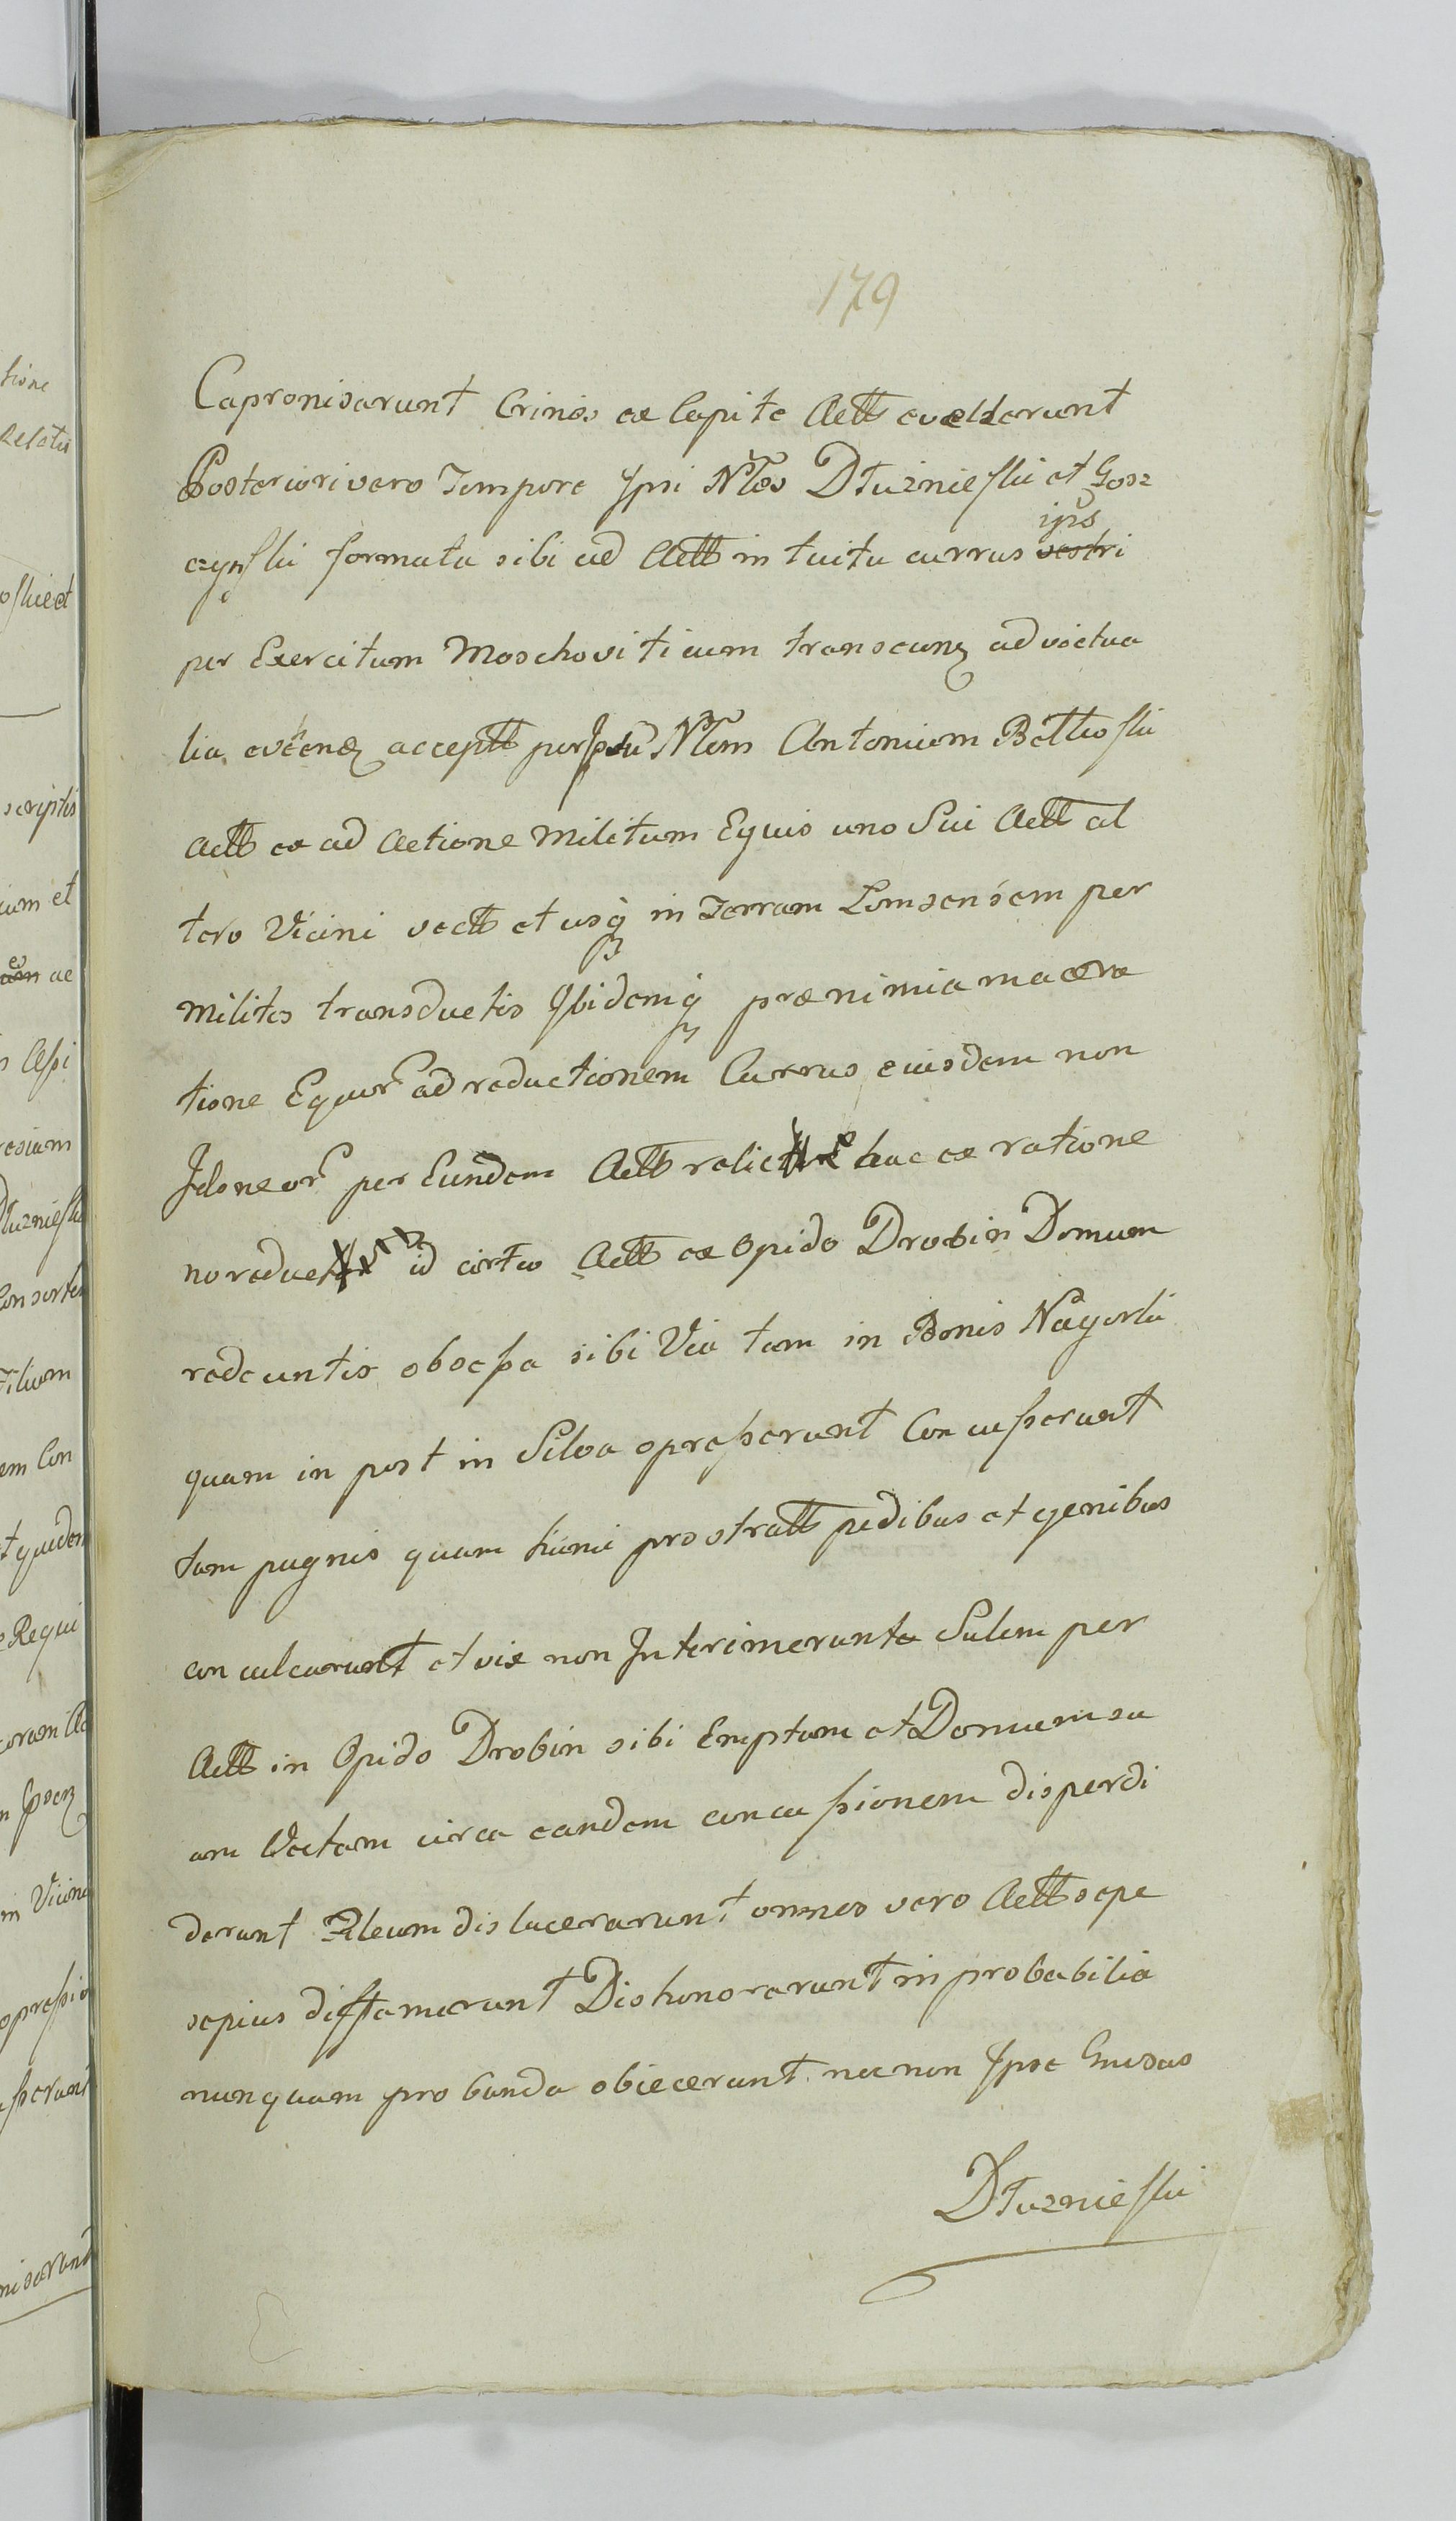 179
Capronisarunt Crines ex Capite Actt evelderunt
Posteriori vero Tempore Ipsi Nles Dłuznieski et Gosz
czynski formata sibi ad Actt in tuitu currus vestri ips
per Exercitum Moschoviticum transeunz ad victua
lia evéenđ acceptt per Ipsū Nlem Antonium Betkoski
Actt ex ad Actione Militum Equis uno Sui Actt al
tero Vicini vectt et usq in Terram Lomzensem per
Milites transductis Ibidemq prae nimia macera
tione Equor ad reductionem Currus eiusdem non
Idoneor per Eundem Actt relict hac ex ratione
no reduct id circo Actt ex Opido Drobin Domum
redeuntis obsessa sibi Via tam in Bonis Nagorki
quam in post in Silva opresserunt Concusserunt
tam pugnis quam humi prostratt pedibus et genibus
con culcarunt et vix non Interimerunt Salem per
Actt in Opido Drobin sibi Emptam et Domum su
am Vectam circa eandem concussionem disperdi
derunt Pileum dis lacerarunt omnes vero Actt sepe
sepius diffamarunt Dishonorarunt in probabilia
nunquam pro banda obiecerunt nec non Ipse Gnosus
Dłuznieski
tione
Relatis
oskiect
scriptis
ium et
ae
resium
Dłuznieski
Consorte
Filium
em Con
t quidem
Requi
coram Ac
m Vicina
opressio
sserunt
nisarunt